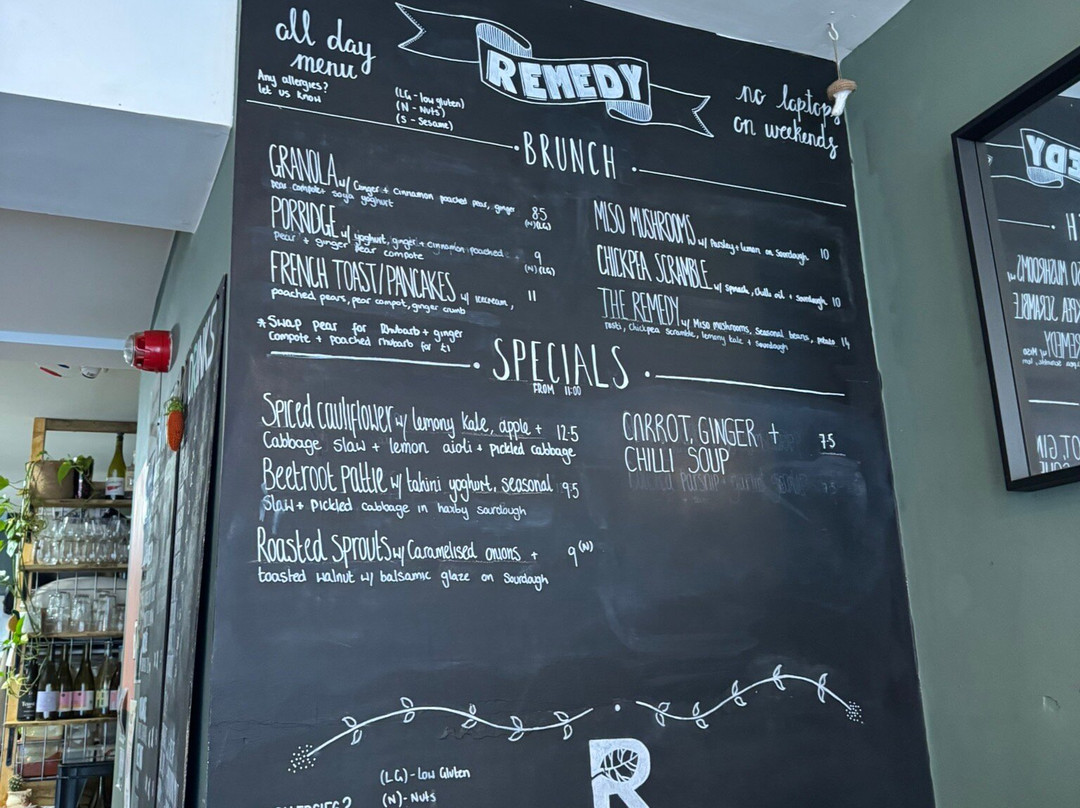 all day
menu
Any allergies?
let us know
(LG - low gluten)
(N - Nuts)
(S - Sesame)
REMEDY
no laptops
on weekends
BRUNCH
GRANOLA w/ Ginger + Cinnamon poached pear, ginger
pear compote + soya yoghurt
8.5
(N)(LG)
PORRIDGE w/ yoghurt, ginger + cinnamon poached
Pear + ginger pear compote
9
(N)(LG)
FRENCH TOAST/PANCAKES w/ icecream,
poached pears, pear compot, ginger crumb
11
*Swap pear for Rhubarb + ginger
Compote + poached rhubarb for £1
MISO MUSHROOMS w/ Parsley + lemon on Sourdough 10
CHICKPEA SCRAMBLE w/ spinach, chilli oil + sourdough 10
THE REMEDY w/ Miso mushrooms, Seasonal beans, potato 14
rosti, chickpea scramble, lemony kale + sourdough
SPECIALS
FROM 11:00
Spiced cauliflower w/ lemony kale, apple + 12.5
Cabbage slaw + lemon aioli + pickled cabbage
Beetroot pattie w/ tahini yoghurt, seasonal 9.5
Slaw + pickled cabbage in harby sourdough
Roasted sprouts w/ Caramelised onions + 9 (N)
toasted walnut w/ balsamic glaze on Sourdough
CARROT, GINGER + 7.5
CHILLI SOUP
R
(LG) - low Gluten
(N) - Nuts